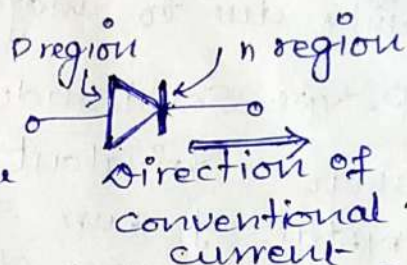 p region n region
Direction of
conventional
current